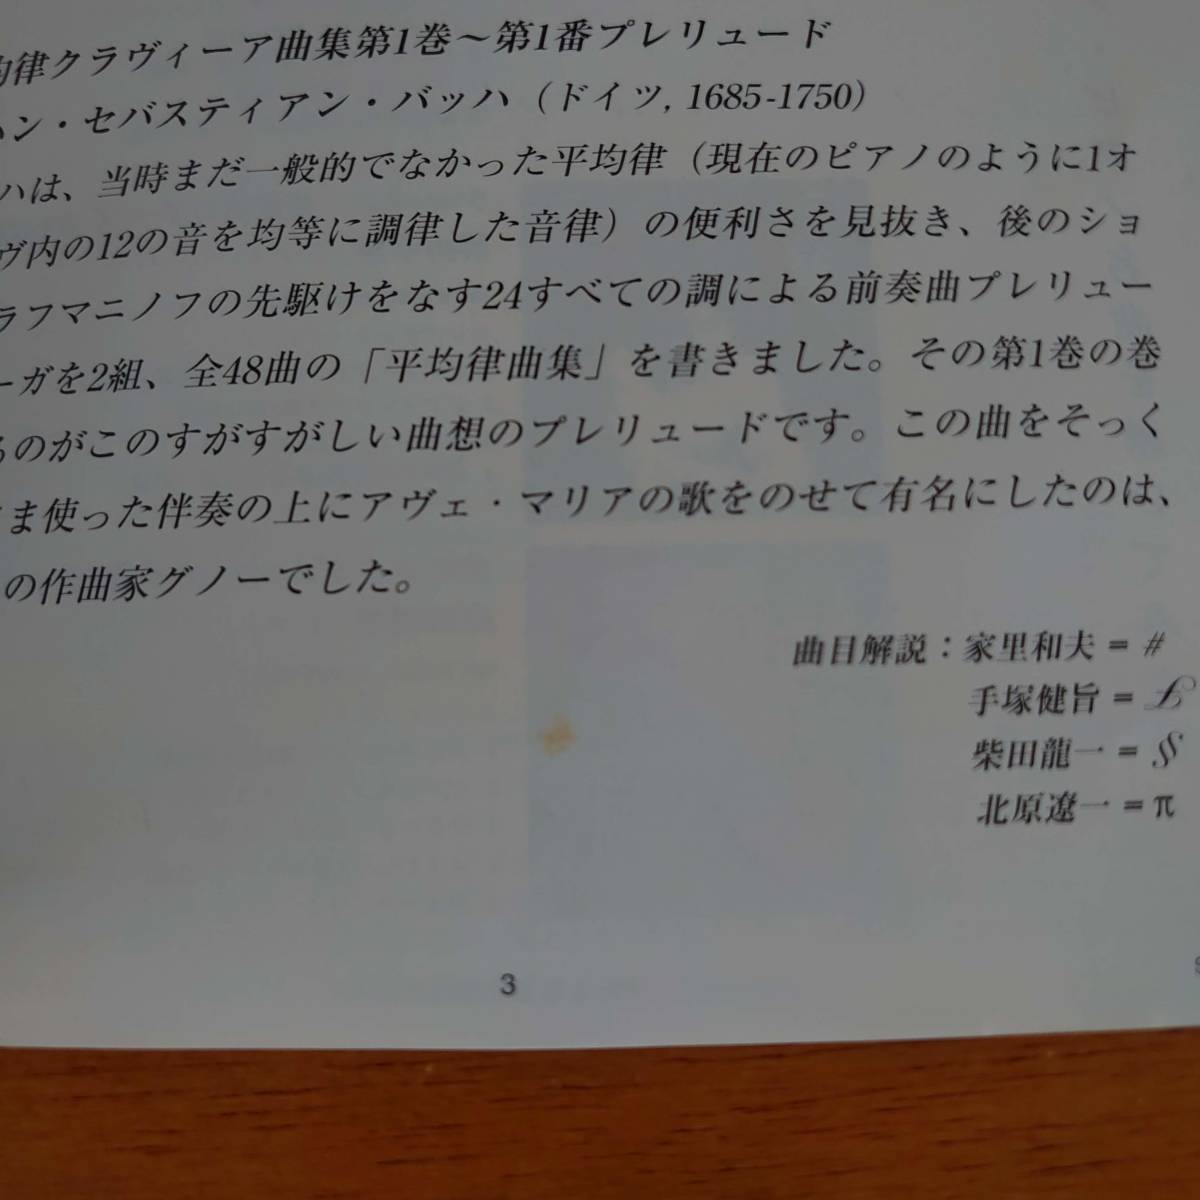 均律クラヴィーア曲集第1巻～第1番プレリュード
ハン・セバスティアン・バッハ（ドイツ, 1685-1750）
ハは、当時まだ一般的でなかった平均律（現在のピアノのように1オ
ヴ内の12の音を均等に調律した音律）の便利さを見抜き、後のショ
ラフマニノフの先駆けをなす24すべての調による前奏曲プレリュー
ーガを2組、全48曲の「平均律曲集」を書きました。その第1巻の巻
るのがこのすがすがしい曲想のプレリュードです。この曲をそっく
ま使った伴奏の上にアヴェ・マリアの歌をのせて有名にしたのは、
の作曲家グノーでした。
曲目解説：家里和夫＝#
手塚健旨＝£
柴田龍一＝§
北原遼一＝π
3